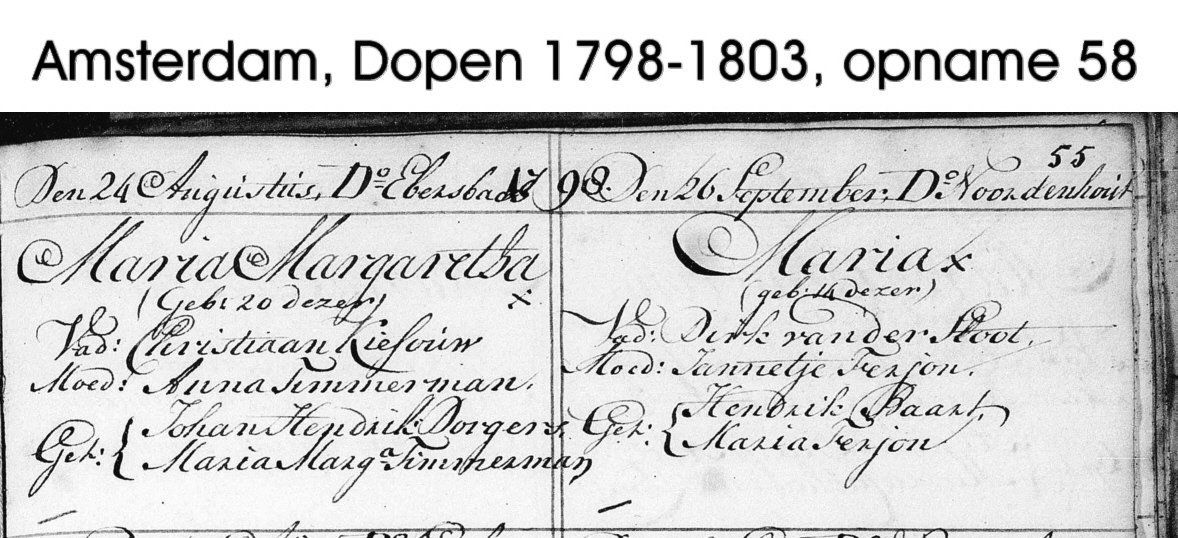 Amsterdam, Dopen 1798-1803, opname 58
55
Den 24 Augustus, Do Ebersbach 1798. Den 26 September, Do Noordenhout
Maria Margaretha x
(Geb: 20 dezer)
Vad: Christiaan Kiesouw
Moed: Anna Timmerman.
Get: { Johan Hendrik Dorgers,
Maria Marga Timmerman
Maria x
(geb: 14 dezer)
Vad: Dirk van der Sloot,
Moed: Jannetje Ferjon.
Get: { Hendrik Baart,
Maria Ferjon